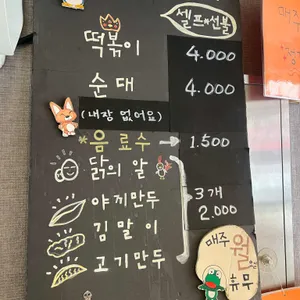 셀프 선불
떡볶이 4.000
순대 4.000
(내장 없어요)
*음료수 → 1.500
닭의 알
야끼만두
김말이
고기만두
3개
2.000
매주
휴무